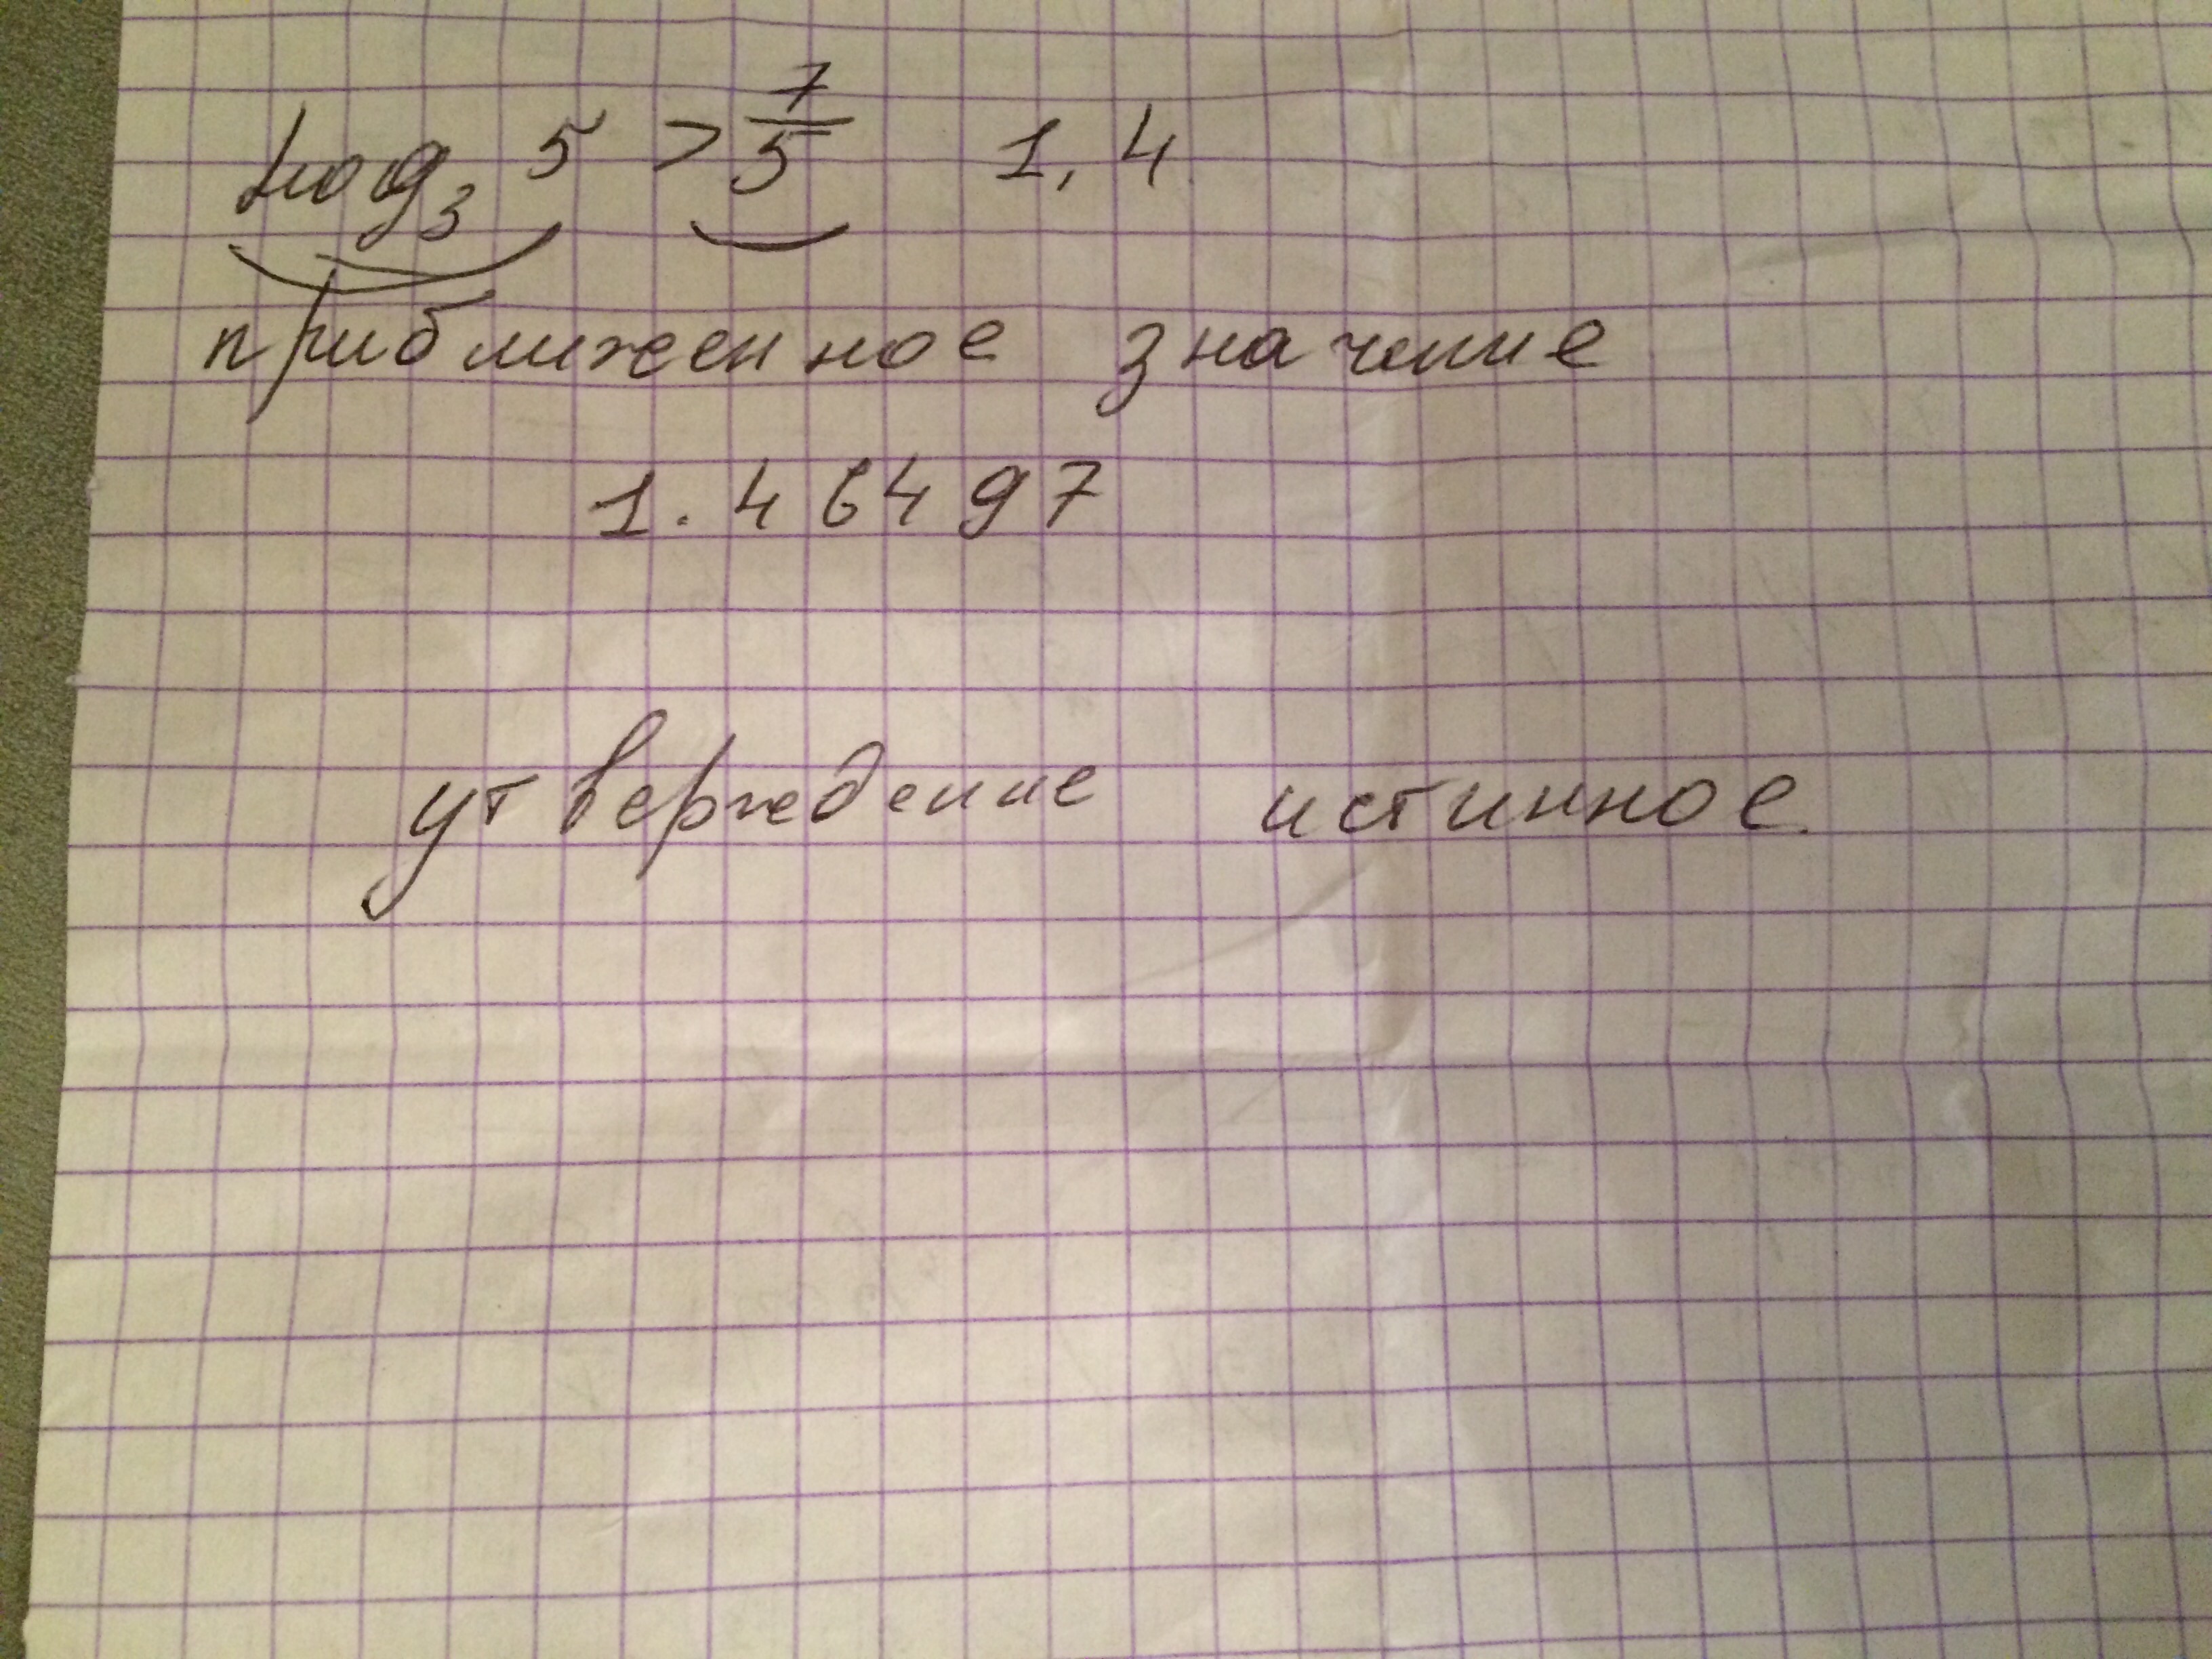 log₃ 5 > 7/5 1,4
приближенное значение
1.46497
утверждение истинное.